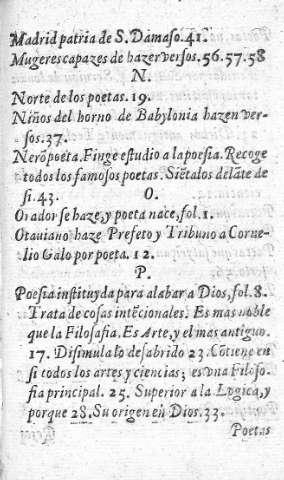 Madrid patria de S. Damaso. 41.
Mugeres capazes de hazer versos. 56. 57. 58
N.
Norte de los poetas. 19.
Niños del horno de Babylonia hazen ver-
sos. 37.
Nerõ poeta. Finge estudio a la poesia. Recoge
todos los famosos poetas. Siẽtalos delãte de
si. 43.
O.
Orador se haze, y poeta nace, fol. 1.
Otauiano haze Prefeto y Tribuno a Corne-
lio Galo por poeta. 12.
P.
Poesia instituyda para alabar a Dios, fol. 8.
Trata de cosas intẽcionales. Es mas noble
que la Filosafia. Es Arte, y el mas antiguo.
17. Disimula lo desabrido 23. Cõtiene en
si todos los artes y ciencias; es vna Filoso-
fia principal. 25. Superior a la Logica, y
porque 28. Su origen en Dios. 33.
Poetas